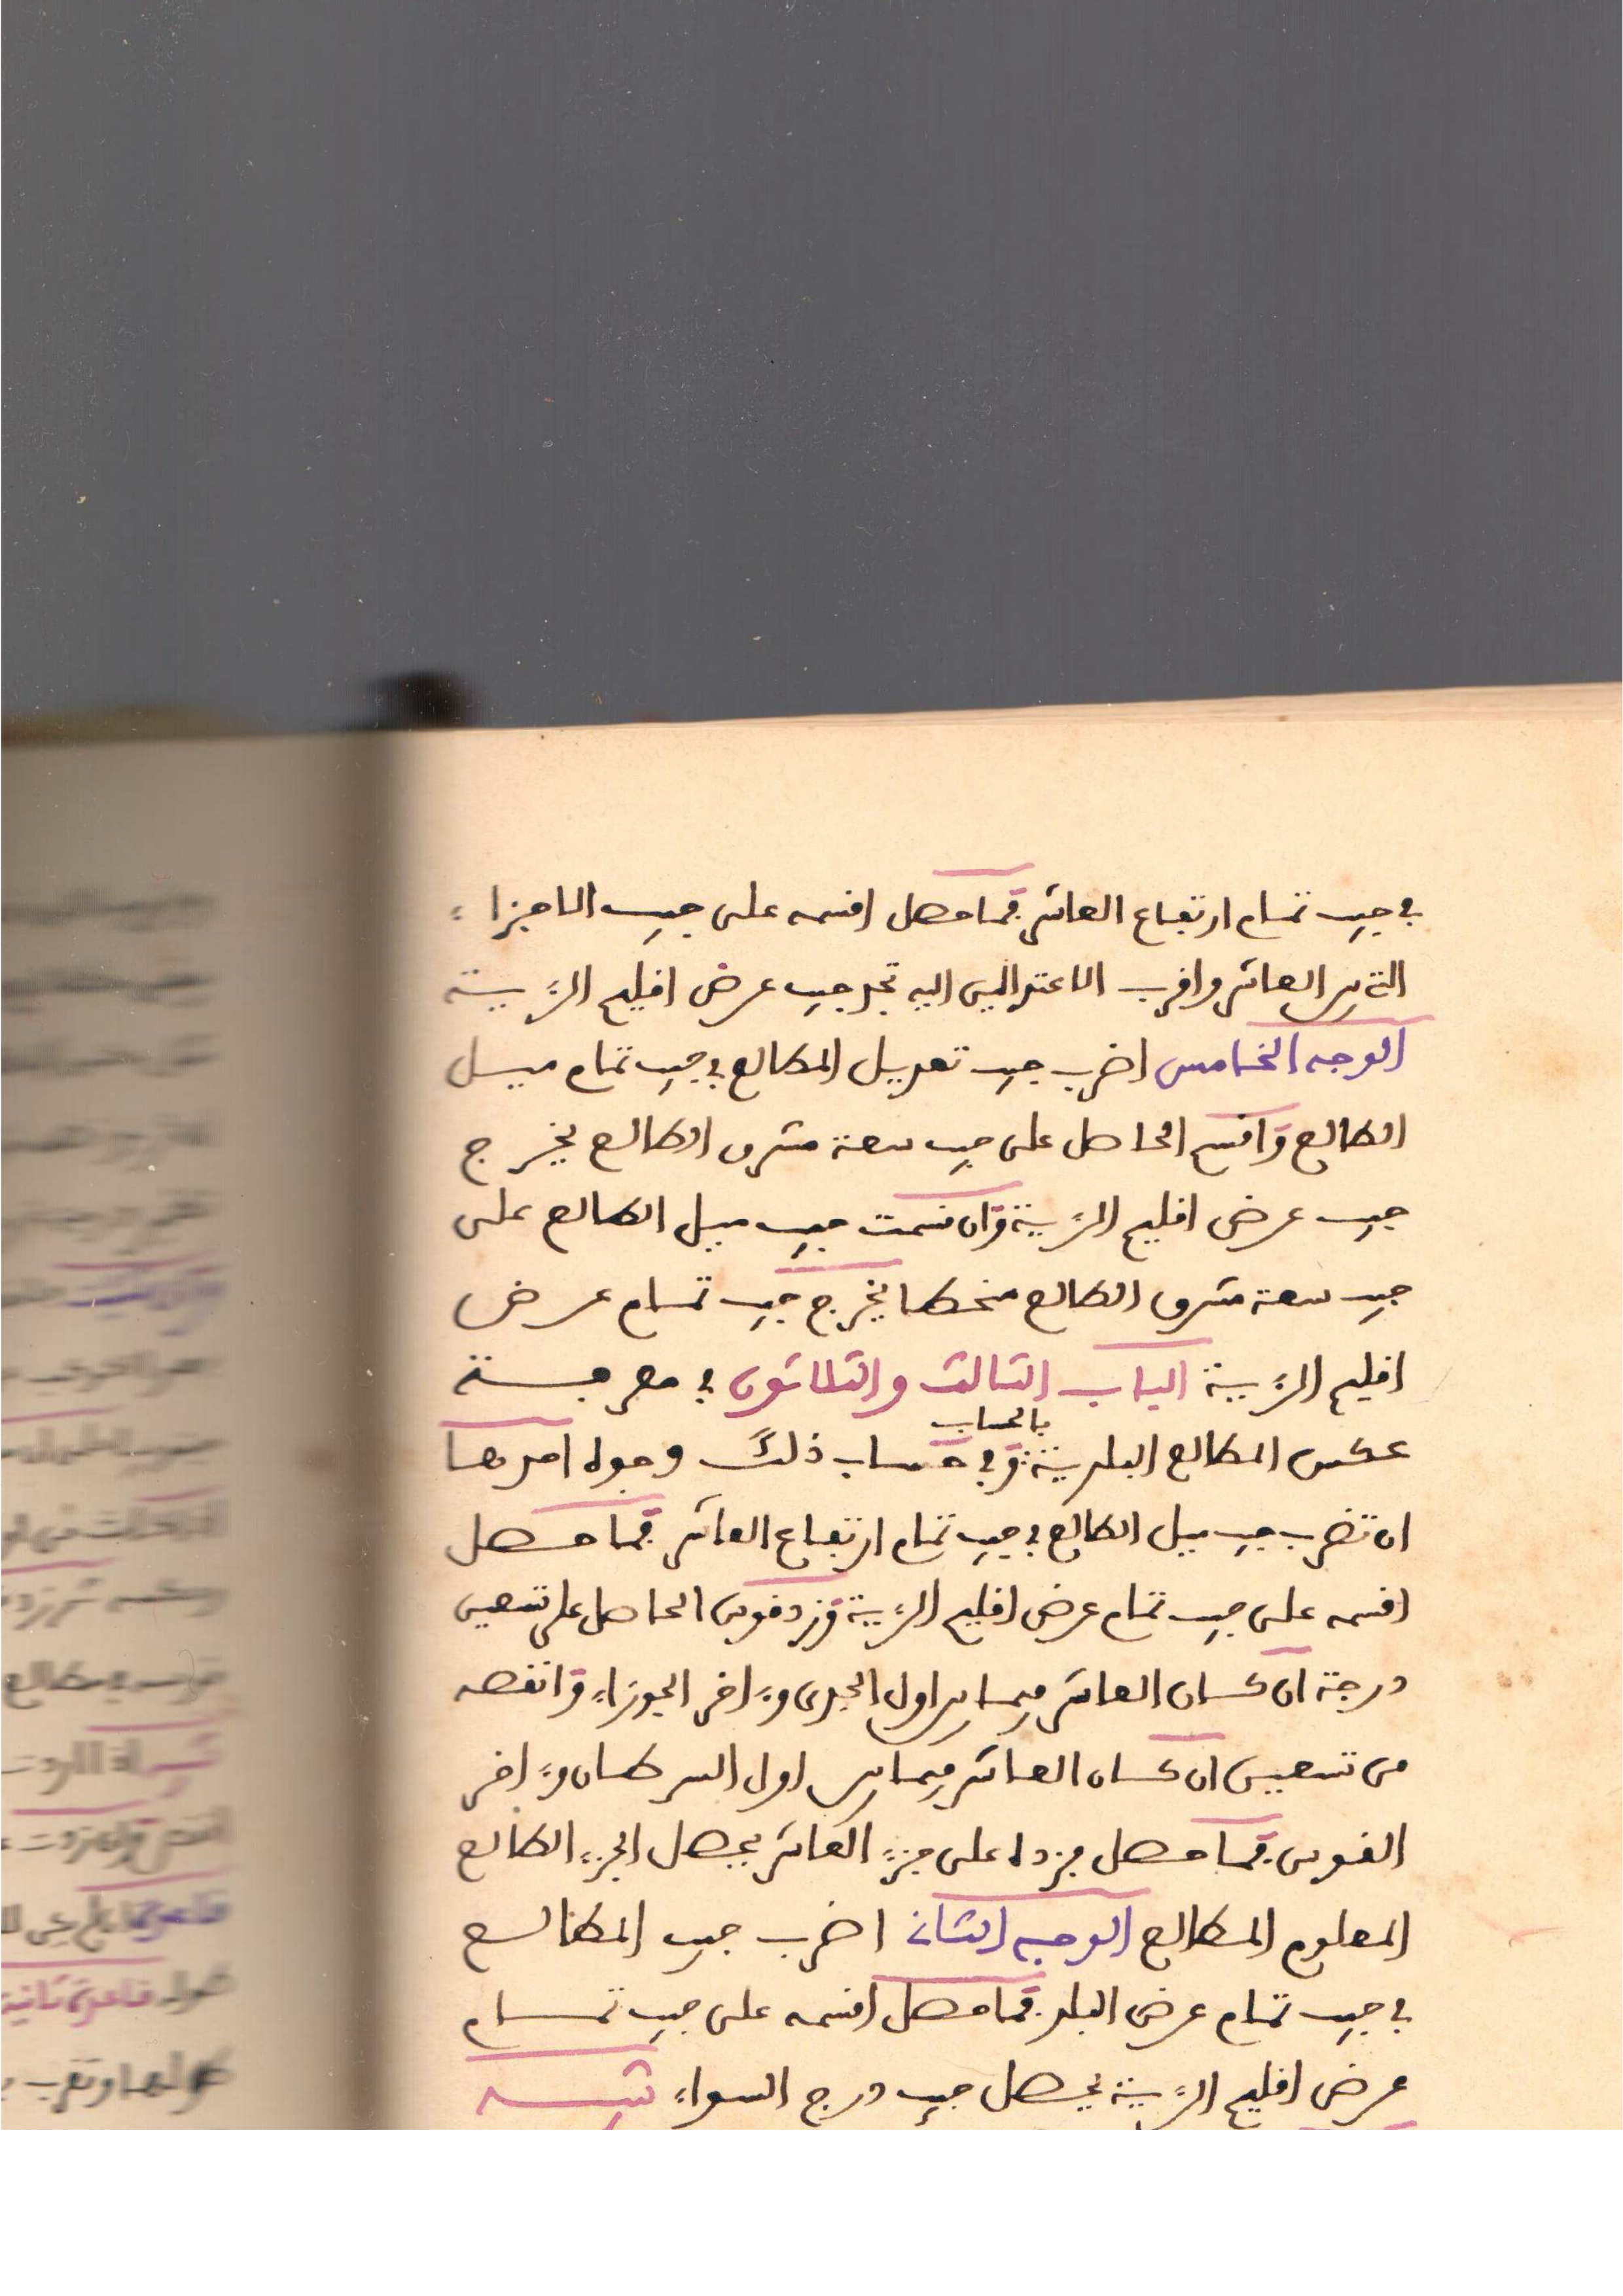 في جيب تمام ارتفاع العاشر فما حصل اقسمه على جيب الاجزاء
التي بين العاشر واقرب الاعتدالين اليه تجد جيب عرض اقليم الرؤية
الوجه الخامس اضرب جيب تعديل المطالع في جيب تمام ميل
الطالع واقسم الحاصل على جيب سعة مشرق الطالع يخرج
جيب عرض اقليم الرؤية وان قسمت جيب ميل الطالع على
جيب سعة مشرق الطالع منحطا يخرج جيب تمام عرض
اقليم الرؤية الباب الثالث والثلاثون في معرفة
عكس المطالع البلدية بالحساب وفي حساب ذلك وجوه احدها
ان تضرب جيب ميل الطالع في جيب تمام ارتفاع العاشر فما حصل
اقسمه على جيب تمام عرض اقليم الرؤية وزد قوس الحاصل على تسعين
درجة ان كان العاشر فيما بين اول الجدي وءاخر الجوزاء وانقصه
من تسعين ان كان العاشر فيما بين اول السرطان وءاخر
القوس فما حصل فزده على جزء العاشر يحصل الجزء الطالع
المعلوم المطالع الوجه الثاني اضرب جيب المطالع
في جيب تمام عرض البلد فما حصل اقسمه على جيب تمام
عرض اقليم الرؤية يحصل جيب درج السواء تنبيه